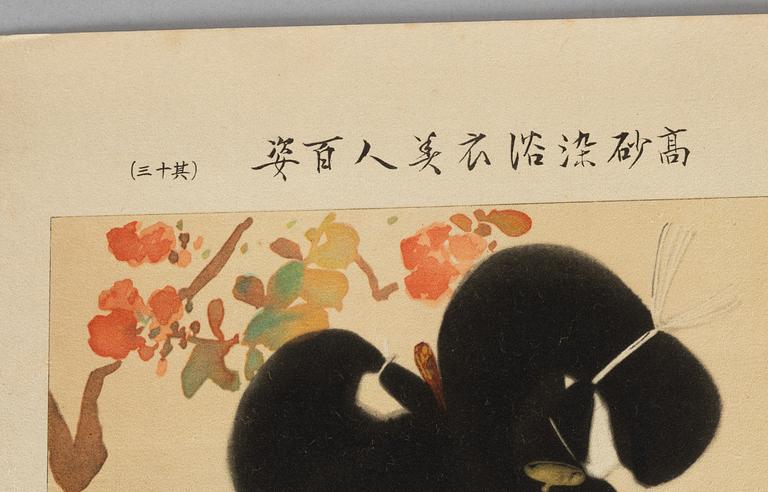 高砂染浴衣美人百姿 (其十三)